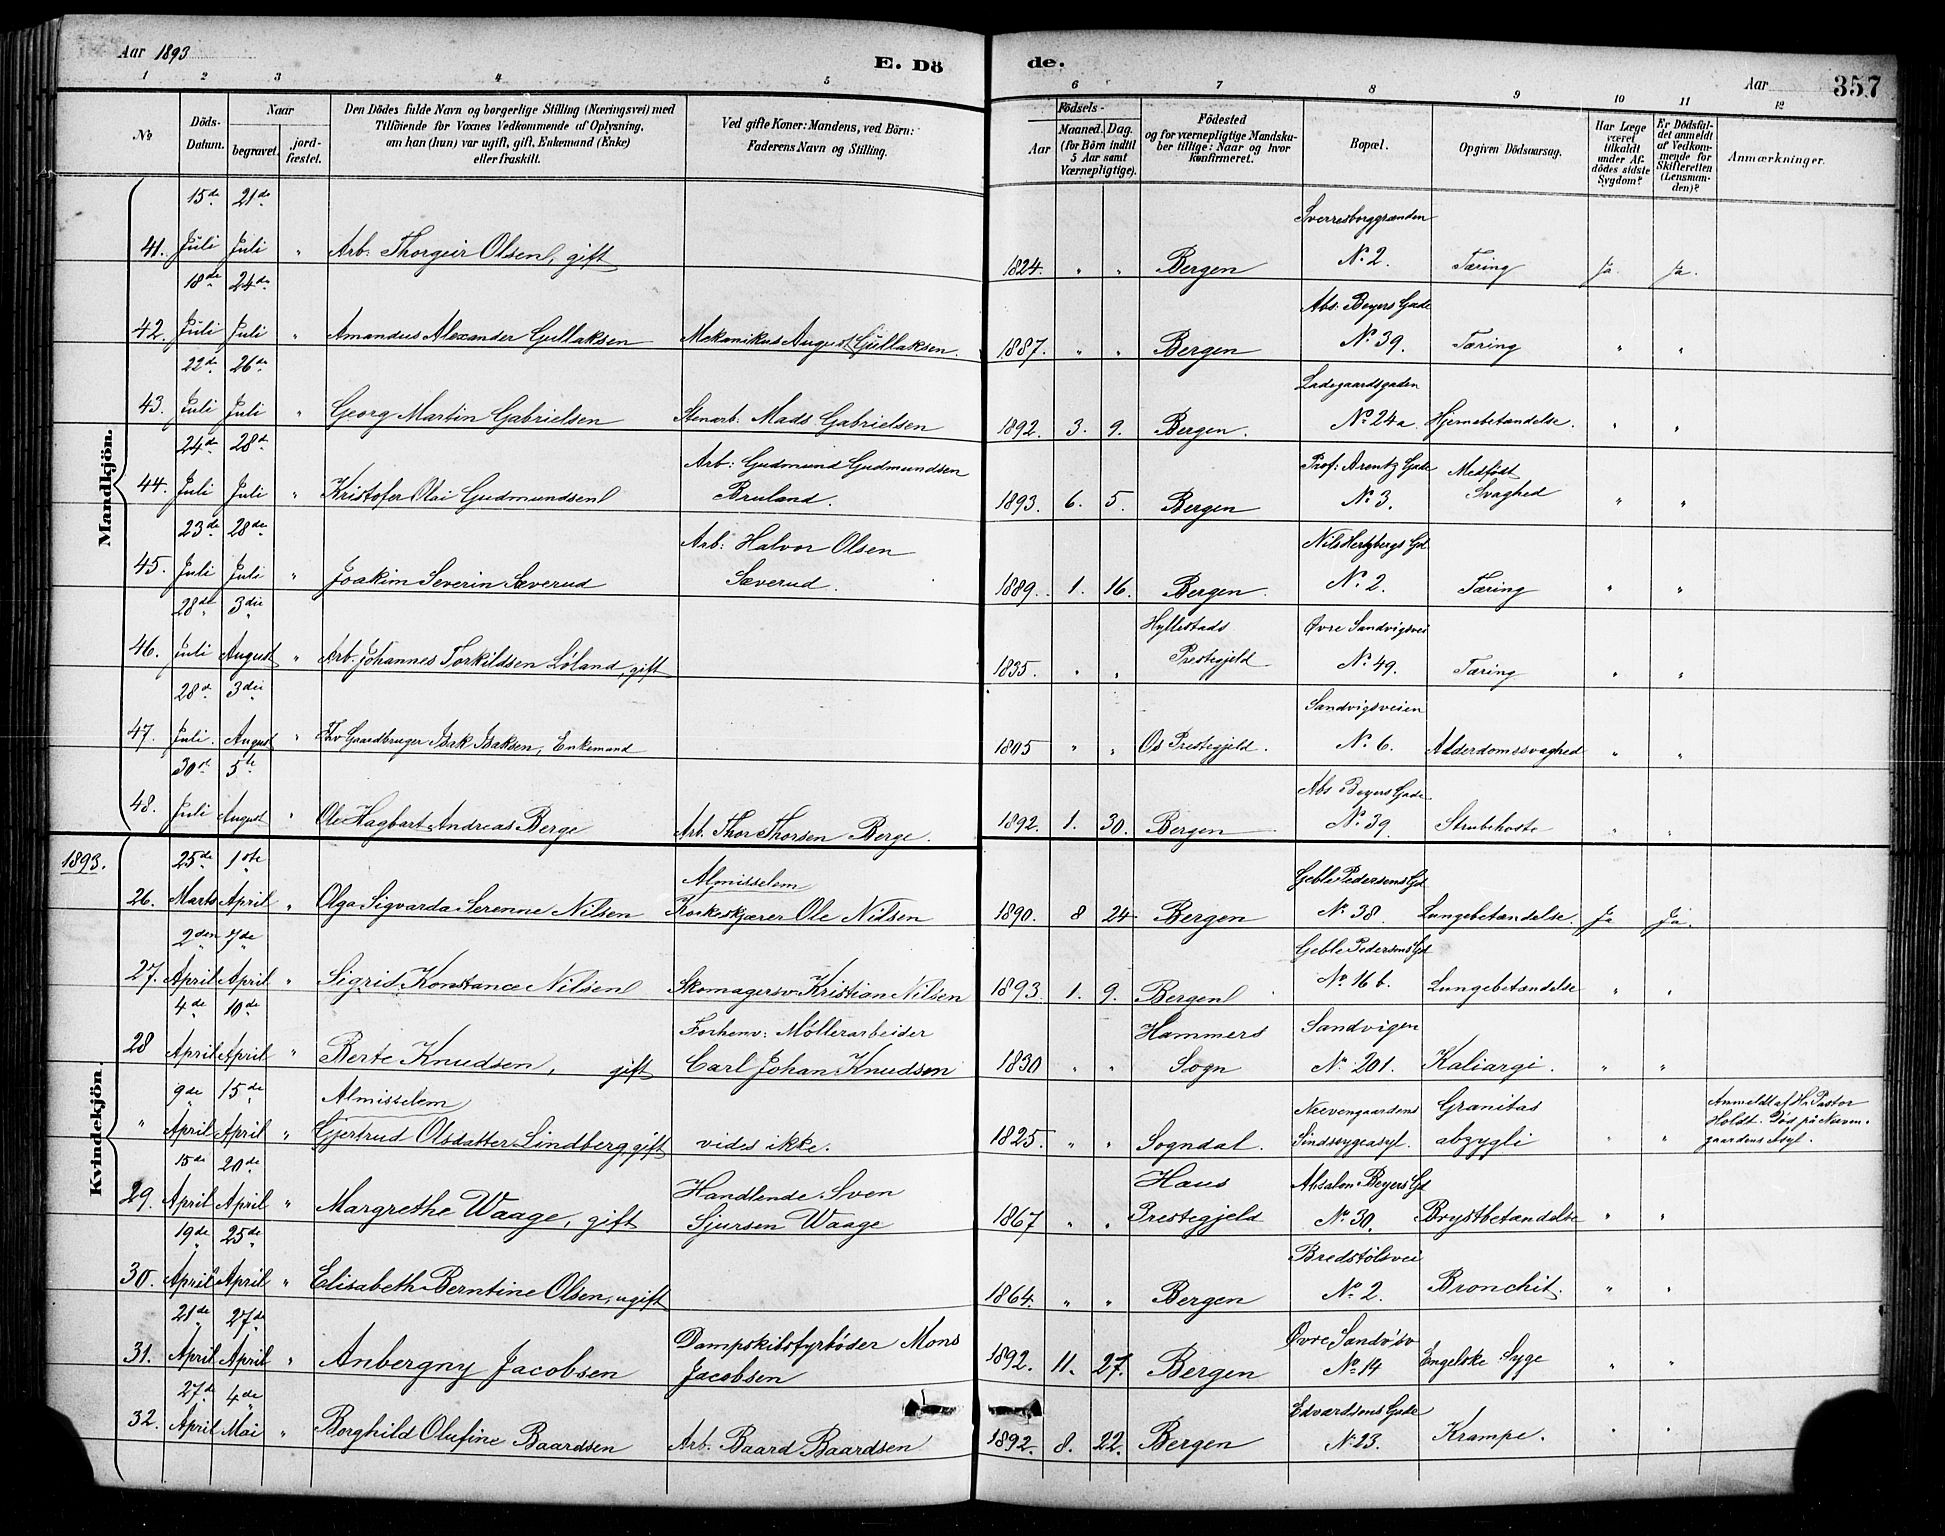 Aar 1893
E. Dö
de.
Aar
357
1 2 3 4 5 6 7 8 9 10 11 12
No
Döds-Datum.
Naar
begravet.
jord-fæstet.
Den Dödes fulde Navn og borgerlige Stilling (Næringsvei) med
Tilföiende for Voxnes Vedkommende af Oplysning,
om han (hun) var ugift, gift, Enkemand (Enke)
eller fraskilt.
Ved gifte Koner: Mandens, ved Börn:
Faderens Navn og Stilling.
Födsels-
Aar
Maaned. Dag.
(for Börn indtil
5 Aar samt
Værnepligtige).
Födested
og for værnepligtige Mandsku-
ber tillige: Naar og hvor
konfirmeret.
Bopæl.
Opgiven Dödsaarsag.
Har Læge
været
tilkaldt
under Af-
dödes sidste
Sygdom?
Er Dödsfal-
det anmeldt
af Vedkom-
mende for
Skifteretten
(Lensman-
den)?
Anmærkninger.
Mandkjön.
15de 21de Sverresborggrænden
41. Juli Juli " Arb. Thorgeir Olsen, gift 1824. " " Bergen No 2. Tæring Ja. Ja.
18de 24de Abs. Beyers Gade
42. Juli Juli " Amandus Alexander Gullaksen Mekanikus August Gullaksen. 1887. " " Bergen No 39. Tæring " "
22de 26de Ladegaardsgaden
43. Juli Juli " Georg Martin Gabrielsen Stenarb. Mads Gabrielsen 1892. 3. 9. Bergen. No 24a. Hjernebetændelse. " "
24de 28d Arb: Gudmund Gudmundsen Prof: Arentz Gade Medfødt
44. Juli Juli " Kristofer Olai Gudmundsen Bruland. 1893. 6. 5. Bergen No 3. Svaghed " "
23de 28de Arb: Halvor Olsen Nils Hertzbergs Gd
45. Juli Juli " Joakim Severin Sæverud Sæverud. 1889. 1. 16. Bergen. No 2. Tæring " "
28de 3die Hyllestads Øvre Sandvigsvei
46. Juli August " Arb. Johannes Torkildsen Løland, gift 1835. " " Prestegjeld No 49. Tæring " "
28d 3die Sandvigsveien
47. Juli. August " Fhv Gaardbruger Isak Isaksen, Enkemand 1805 " " Os Prestegjeld. No 6. Alderdomssvaghed " "
30te 5te Abs Beyers Gade
48. Juli August " Ole Hagbart Andreas Berge Arb. Thor Thorsen Berge. 1892. 1. 30. Bergen No 39. Strubehoste " "
1893.
Kvindekjön.
25de 1ste Almisselem Geble Pedersens Gd
26. Marts April " Olga Sigvarda Serenne Nilsen Korkeskjærer Ole Nilsen 1890. 8 24 Bergen No 38. Lungebetændelse. Ja Ja.
2den 7de Geble Pedersens Gd
27. April April " Sigrid Konstance Nilsen Skomagersv. Kristian Nilsen 1893. 1. 9. Bergen No 16 b. Lungebetændelse " "
4de 10de Forhenv: Møllerarbeider Hammers Sandvigen
28 April April " Berte Knudsen, gift Carl Johan Knudsen 1830 " " Sogn No 201. Kaliargi. " "
9de 15de Almisselem Neevengaardens Granitas Anmeldt af Hr. Pastor
" April April " Gjertrud Olsdatter Lindberg, gift vides ikke. 1825. " " Sogndal. Sindssygeasyl. abzygli " " Holdt. Død på Neeven-
gaardens Asyl.
15de 20de Handlende Sven Haus Absalon Beyers Gd
29. April April " Margrethe Waage, gift Sjursen Waage 1867 " " Prestegjeld No 30. Brystbetændelse " "
19de 25de Bredstølsvei
30. April April " Elisabeth Berntine Olsen, ugift 1864. " " Bergen No 2. Bronchit. " "
21de 27de Dampskibsfyrbøder Mons Øvre Sandv:sv
31. April April " Anbergny Jacobsen Jacobsen 1892. 11. 27. Bergen No 14 Engelske Syge " "
27d 4de Edvardsens Gade
32. April Mai " Borghild Olufine Baardsen Arb. Baard Baardsen 1892. 8. 22. Bergen N. 23. Krampe. " "